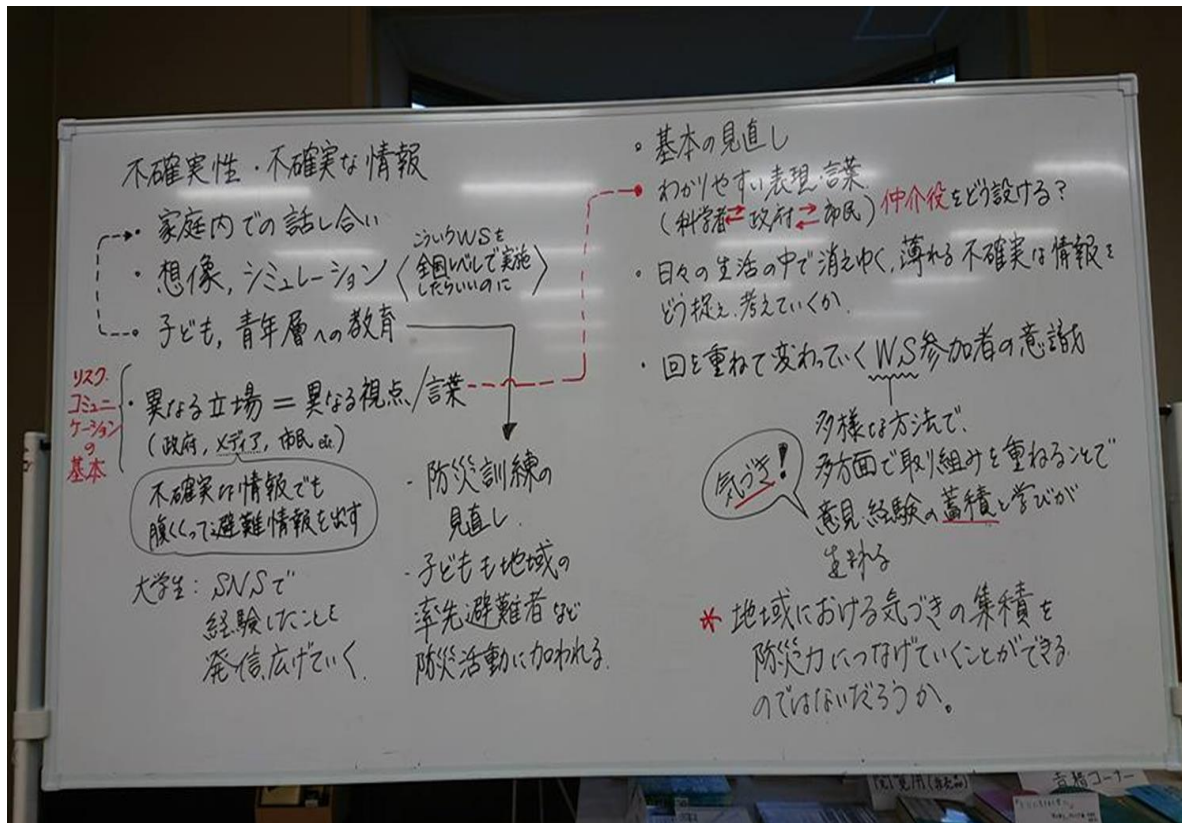 不確実性・不確実な情報
・家庭内での話し合い
・想像, シミュレーション
こういうWSを
全国レベルで実施
したらいいのに
・子ども, 青年層への教育
リスク
コミュニ
ケーション
の
基本
・異なる立場 = 異なる視点/言葉
(政府, メディア, 市民 etc.)
不確実な情報でも
腹くくって避難情報を出す
大学生: SNSで
経験したことを
発信、広げていく
・防災訓練の
見直し
・子どもも地域の
率先避難者など
防災活動に加われる
・基本の見直し
わかりやすい表現・言葉
(科学者⇄政府⇄市民) 仲介役をどう設ける?
・日々の生活の中で消えゆく, 薄れる不確実な情報を
どう捉え, 考えていくか
・回を重ねて変わっていくWS参加者の意識
気づき!
多様な方法で,
多方面で取り組みを重ねることで
意見、経験の蓄積と学びが
生まれる
* 地域における気づきの集積を
防災力につなげていくことができる
のではないだろうか。
コーナー